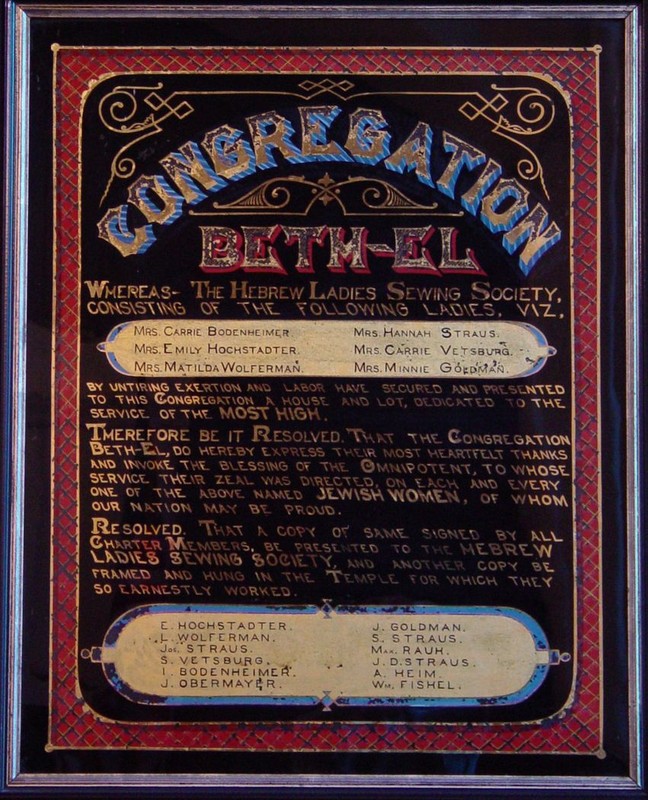 CONGREGATION
BETH-EL
WHEREAS- THE HEBREW LADIES SEWING SOCIETY,
CONSISTING OF THE FOLLOWING LADIES, VIZ,
MRS. CARRIE BODENHEIMER MRS. HANNAH STRAUS.
MRS. EMILY HOCHSTADTER. MRS. CARRIE VETSBURG.
MRS. MATILDA WOLFERMAN. MRS. MINNIE GOLDMAN.
BY UNTIRING EXERTION AND LABOR HAVE SECURED AND PRESENTED
TO THIS CONGREGATION A HOUSE AND LOT, DEDICATED TO THE
SERVICE OF THE MOST HIGH.
THEREFORE BE IT RESOLVED. THAT THE CONGREGATION
BETH-EL, DO HEREBY EXPRESS THEIR MOST HEARTFELT THANKS
AND INVOKE THE BLESSING OF THE OMNIPOTENT, TO WHOSE
SERVICE THEIR ZEAL WAS DIRECTED, ON EACH AND EVERY
ONE OF THE ABOVE NAMED JEWISH WOMEN, OF WHOM
OUR NATION MAY BE PROUD.
RESOLVED. THAT A COPY OF SAME SIGNED BY ALL
CHARTER MEMBERS, BE PRESENTED TO THE HEBREW
LADIES SEWING SOCIETY, AND ANOTHER COPY BE
FRAMED AND HUNG IN THE TEMPLE FOR WHICH THEY
SO EARNESTLY WORKED.
E. HOCHSTADTER. J. GOLDMAN.
L. WOLFERMAN. S. STRAUS.
JOS. STRAUS. MAX. RAUH.
S. VETSBURG. J.D. STRAUS.
I. BODENHEIMER. A. HEIM.
J. OBERMAYER. WM. FISHEL.